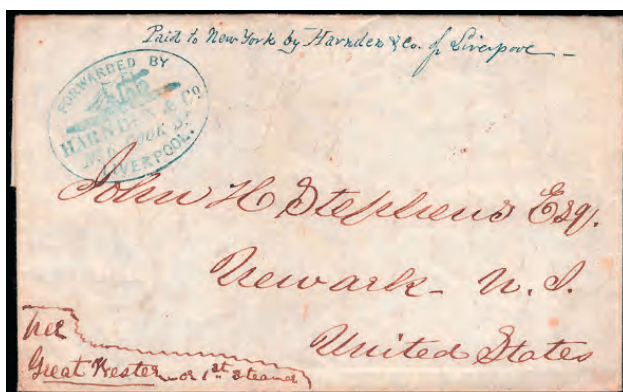 Paid to New York by Harnden & Co. of Liverpool
FORWARDED BY
HARNDEN & Co
No 6 COOK St
LIVERPOOL.
John H Stephens Esq.
Newark - N. J.
United States
per
Great Western or 1st Steamer